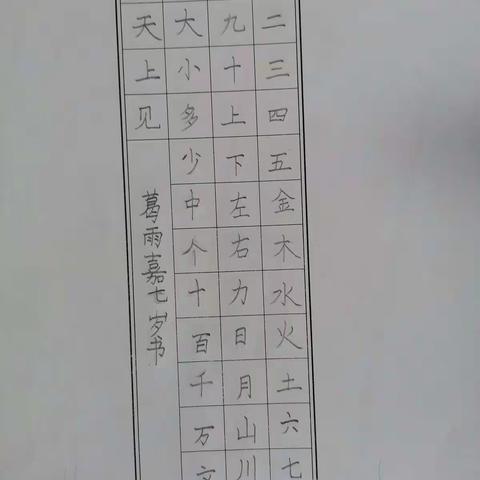 二三四五金木水火土六七
九十上下左右力日月山川
大小多少中个十百千万文
天上见
葛雨嘉七岁书